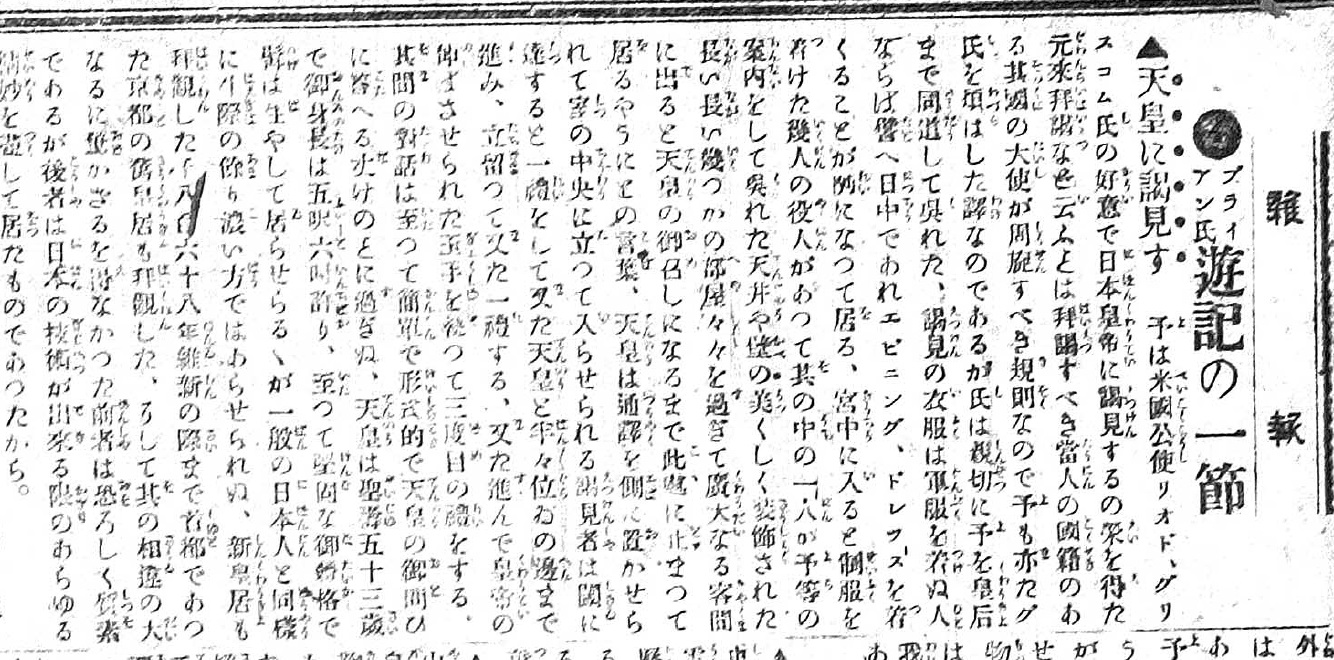 雜報
ブライアン氏遊記の一節
▲天皇に謁見す 予は米國公使リオド、グリ
スコム氏の好意で日本皇帝に謁見するの榮を得た
元來拜謁など云ふことは拜謁すべき當人の國籍のあ
る其國の大使が周旋すべき規則なので予も亦たグ
氏を煩はした譯なのであるが氏は親切に予を皇后
まで同道して呉れた、謁見の衣服は軍服を着ぬ人
ならば譬へ日中であれエビニング、ドレツスを着
くることが例になつて居る、宮中に入ると制服を
着けた幾人の役人があつて其の中の一人が予等の
案内をして呉れた天井や壁の美くしく裝飾された
長い長い幾つかの部屋々々を過ぎて廣大なる客間
に出ると天皇の御召しになるまで此處に止まつて
居るやうにとの言葉、天皇は通譯を側に置かせら
れて室の中央に立つて入らせられる謁見者は閾に
達すると一禮をして又た天皇と半々位ゐの邊まで
進み、立留つて又た一禮する、又た進んで皇帝の
伸ばさせられた玉手を執つて三度目の禮をする、
其間の對話は至つて簡單で形式的で天皇の御問ひ
に答へる丈けのとに過ぎぬ、天皇は聖壽五十三歳
で御身長は五呎六吋許り、至つて堅固な御體格で
髯は生やして居らせらるゝが一般の日本人と同樣
に生際の餘り濃い方ではあらせられぬ、新皇居も
拜觀した千八百六十八年維新の際まで首都であつ
た京都の舊皇居も拜觀した、そして其の相違の大
なるに驚かざるを得なかつた前者は恐ろしく質素
であるが後者は日本の技術が出來る限のあらゆる
精妙を盡して居たものであつたから。